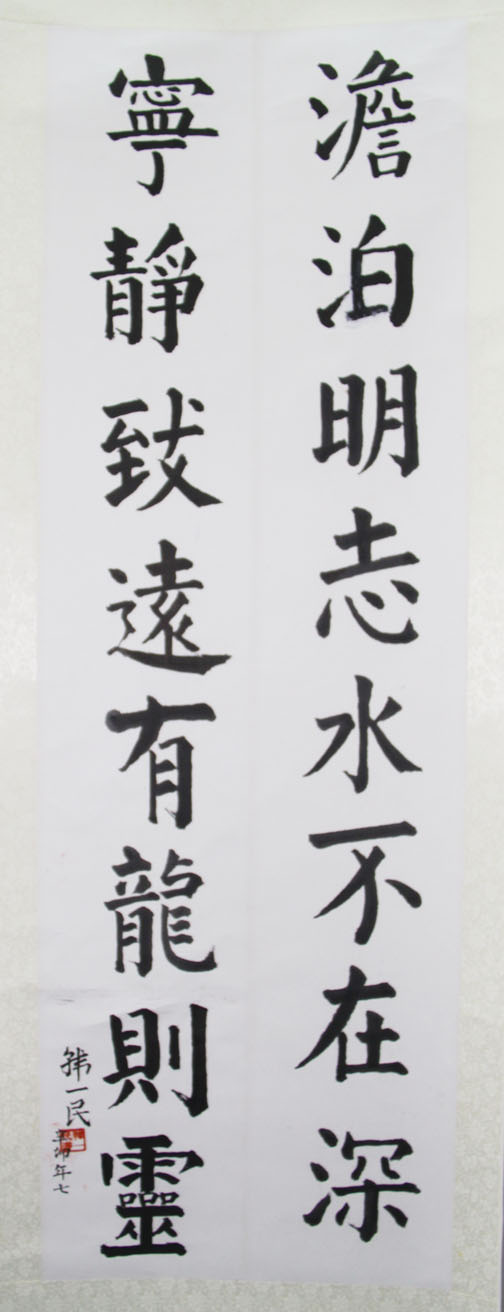 澹泊明志水不在深
寧靜致遠有龍則靈
韩一民
辛卯年七